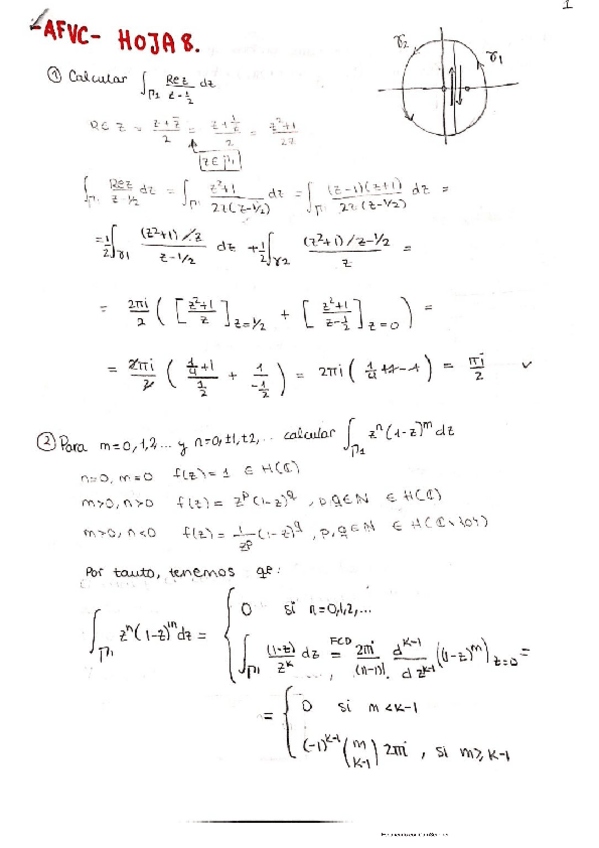 1
-AFVC- HOJA 8.
γ2
γ1
① Calcular ∫_Γ1 Re z / (z - 1/2) dz
Re z = (z + z̄)/2 = (z + 1/z)/2 = (z²+1)/2z
z ∈ Γ1
∫_Γ1 Re z/(z-1/2) dz = ∫_Γ1 (z²+1)/(2z(z-1/2)) dz = ∫_Γ1 (z-1)(z+1)/(2z(z-1/2)) dz =
= 1/2 ∫_γ1 ((z²+1)/z)/(z-1/2) dz + 1/2 ∫_γ2 ((z²+1)/z-1/2)/z =
= 2πi/2 ( [ (z²+1)/z ]_z=1/2 + [ (z²+1)/(z-1/2) ]_z=0 ) =
= 2πi/2 ( (1/4+1)/(1/2) + 1/(-1/2) ) = 2πi ( 1/4 + 1 - 1 ) = πi/2 ✓
② Para m=0,1,2... y n=0,±1,±2,... calcular ∫_Γ1 zⁿ(1-z)ᵐ dz
n=0, m=0 f(z)=1 ∈ H(ℂ)
m>0, n>0 f(z) = z^p (1-z)^q , p,q∈ℕ ∈ H(ℂ)
m>0, n<0 f(z) = 1/z^p (1-z)^q , p,q∈ℕ ∈ H(ℂ\{0})
Por tanto, tenemos qe:
∫_Γ1 zⁿ(1-z)ᵐ dz = { 0 si n=0,1,2,...
∫_Γ1 (1-z)/z^k dz =^FCD 2πi/(n-1)! d^(k-1)/dz^(k-1) ((1-z)^m)_z=0 =
= { 0 si m < k-1
(-1)^(k-1) (m k-1) 2πi , si m ≥ k-1